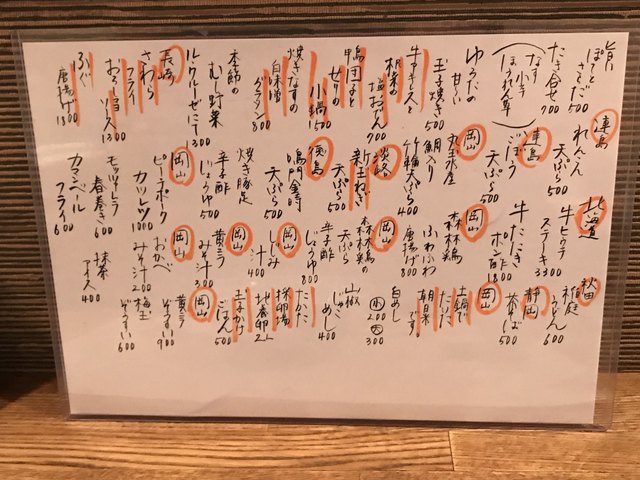 旨い
ぽてとさらだ 500
たき合せ 700
なす
小芋
ほうれん草
ゆうだの
甘〜い
玉子焼き 500
牛すじレスと
根菜の
塩おでん 700
鴨団子と
せりの
小鍋 1500
焼きなすの
白味噌
グラタン 1300
季節の
むし野菜
ル・クルーゼにて 1300
長崎
さわら
フライ
おろしソース 1300
ふぐ
唐揚げ 1300
連島
れんこん
天ぷら 500
連島
ごぼう
天ぷら 500
岡山
鯛入り
竹輪天ぷら 400
淡路
新玉ねぎ
天ぷら
徳島
鳴門金時
天ぷら 500
焼き豚足
辛子酢
じょうゆ 500
岡山
ピーチポーク
カツレツ 1000
モッツァレラ
春巻き 600
カマンベール
フライ 600
北海道
牛ヒウチ
ステーキ 3300
牛たたき
ポン酢 1800
岡山
森林鶏
ふわふわ
唐揚 800
岡山
森林鶏の
天ぷら
辛子酢
じょうゆ 800
岡山
しじみ
汁 400
岡山
黄ニラ
みそ汁 300
岡山
おかべ
みそ汁 200
抹茶
アイス 400
秋田
稲庭
うどん 600
静岡
茶そば 500
岡山
土鍋で
たいた
朝日米
です。
白めし
小 200 大 300
山椒
じゃこ
めし 400
たかた
採卵場
地養卵
玉子かけ
ごはん 500
岡山
黄ニラ
ぞうすい 900
梅玉
ぞうすい 600